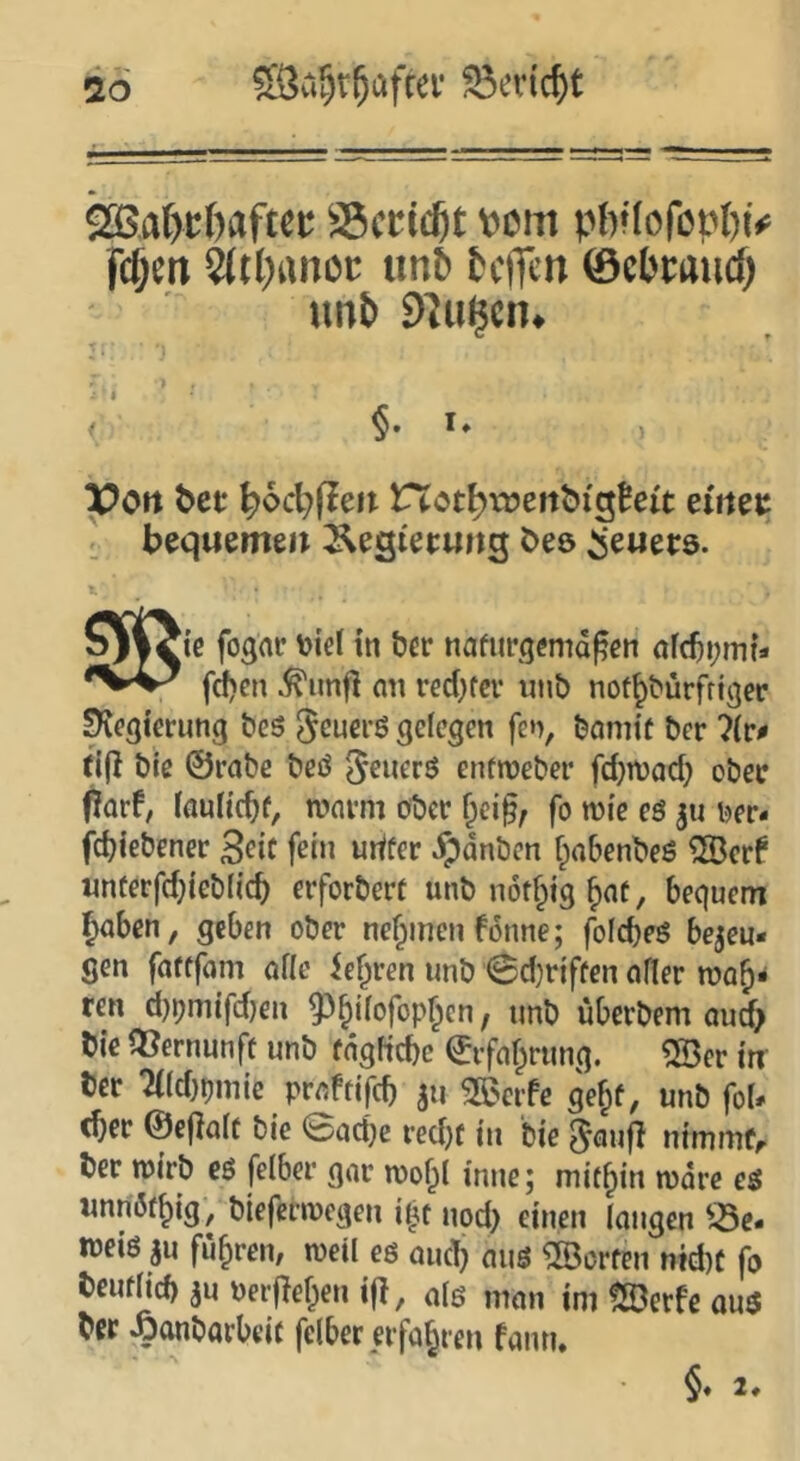 20 Wahrhafter Bericht
Wahrhafter Bericht vom philosophi⸗
schen Athanor und dessen Gebrauch
und Nutzen.
§. 1.
Von der höchsten Nothwendigkeit einer
bequemen Regierung des Feuers.
Wie sogar viel in der naturgemäßen alchymi⸗
schen Kunst an rechter und nothdürftiger
Regierung des Feuers gelegen sey, damit der Ar⸗
tist die Grade des Feuers entweder schwach oder
stark, laulicht, warm oder heiß, so wie es zu ver⸗
schiedener Zeit sein unter Händen habendes Werk
unterschiedlich erfordert und nöthig hat, bequem
haben, geben oder nehmen könne; solches bezeu⸗
gen sattsam alle Lehren und Schriften aller wah⸗
ren chymischen Philosophen, und überdem auch
die Vernunft und tägliche Erfahrung. Wer in
der Alchymie praktisch zu Werke geht, und sol⸗
cher Gestalt die Sache recht in die Faust nimmt,
der wird es selber gar wohl inne; mithin wäre es
unnöthig, dieserwegen itzt noch einen langen Be⸗
weis zu führen, weil es auch aus Worten nicht so
deutlich zu verstehen ist, als man im Werke aus
der Handarbeit selber erfahren kann.
§. 2.